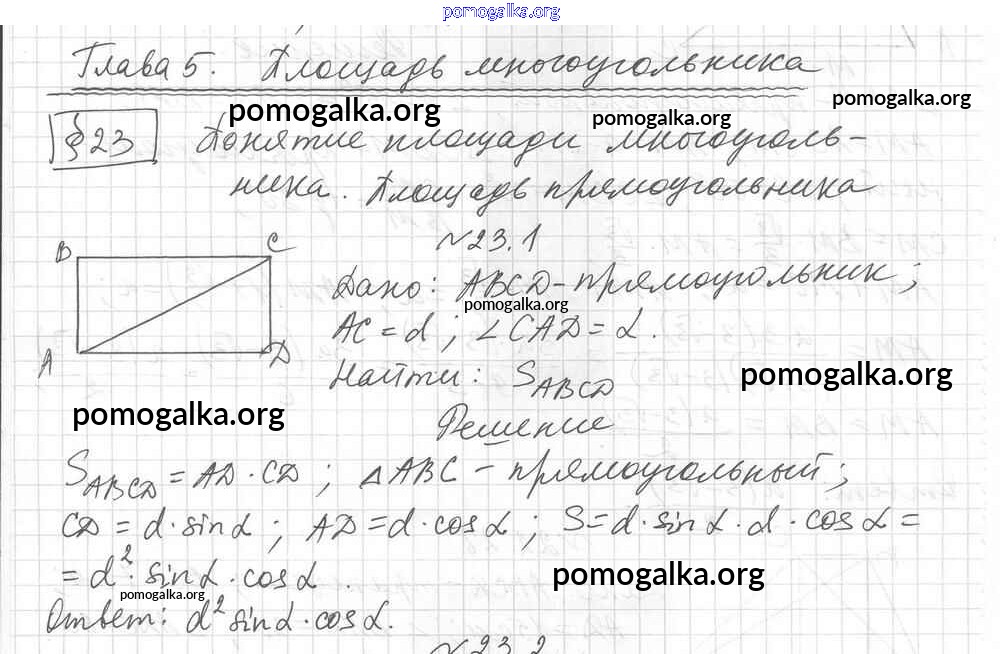 pomogalka.org
Глава 5. Площадь многоугольника
pomogalka.org
pomogalka.org
pomogalka.org
§ 23 Понятие площади многоуголь-
ника. Площадь прямоугольника
№ 23.1
B C
A D
Дано: ABCD – прямоугольник;
pomogalka.org
AC = d; ∠CAD = α.
Найти: S_ABCD
pomogalka.org
pomogalka.org
Решение
S_ABCD = AD · CD; △ABC – прямоугольный;
CD = d · sin α; AD = d · cos α; S = d · sin α · d · cos α =
= d² · sin α · cos α.
pomogalka.org
pomogalka.org
Ответ: d² sin α · cos α.
№ 23.2